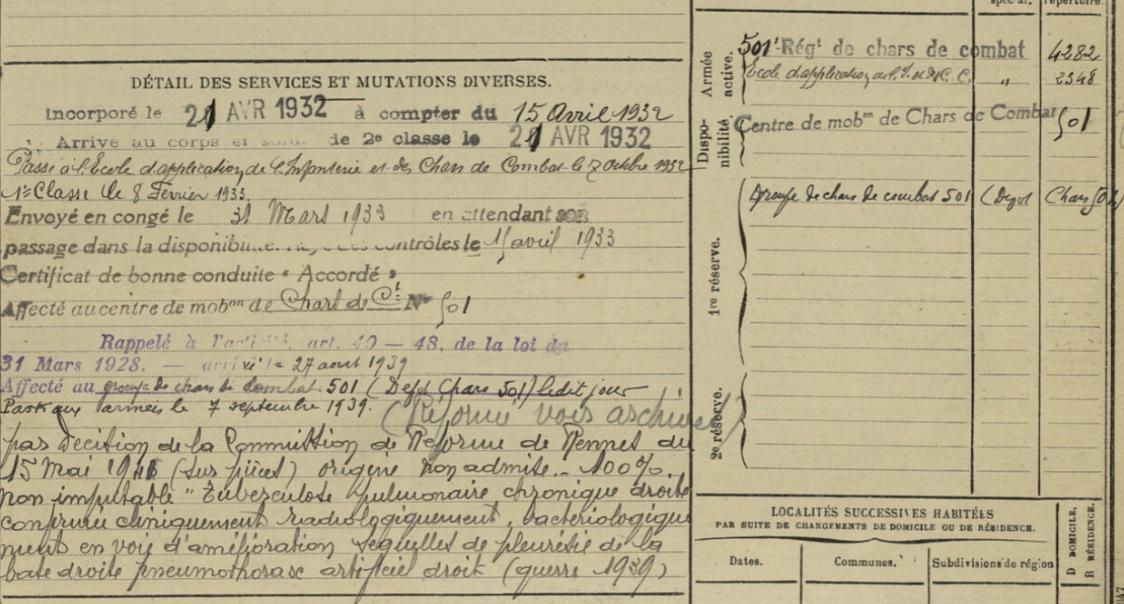 DÉTAIL DES SERVICES ET MUTATIONS DIVERSES.
Incorporé le 21 AVR 1932 à compter du 15 Avril 1932
Arrivé au corps et de 2e classe le 21 AVR 1932
Passé à l'Ecole d'application de l'Infanterie et des Chars de Combat le 7 Octobre 1932
1re Classe le 8 Février 1933.
Envoyé en congé le 31 Mars 1933 en attendant son
passage dans la disponibilité contrôles le 15 avril 1933
Certificat de bonne conduite "Accordé"
Affecté au centre de mobon de Chars de Ct N° 501
Rappelé à l'activité, art. 40 — 48, de la loi du
31 Mars 1928. — arrivé le 27 aout 1939
Affecté au groupe de chars de combat 501 (Depot Chars 501) ledit jour
Parti aux armées le 7 septembre 1939.
(Réformé vois archives)
par Décision de la Commission de Réforme de Rennes du
15 Mai 1941 (sur pièces) origine non admise.. 100%
non imputable "Tuberculose pulmonaire chronique droite
confirmée cliniquement radiologiquement, bactériologique
ment en voie d'amélioration sequelles de pleurésie de la
base droite pneumothorax artificiel droit (guerre 1939)
spécial. répertoire.
Armée active.
501e Régt de chars de combat 4282
Ecole d'application de l'I. et des C. C. " 2348
Disponibilité.
Centre de mobon de Chars de Combat 501
1re réserve.
Groupe de chars de combat 501 (Depot Chars 501)
2e réserve.
LOCALITÉS SUCCESSIVES HABITÉES
PAR SUITE DE CHANGEMENTS DE DOMICILE OU DE RÉSIDENCE.
Dates. Communes. Subdivisions de région
D DOMICILE,
R RÉSIDENCE.